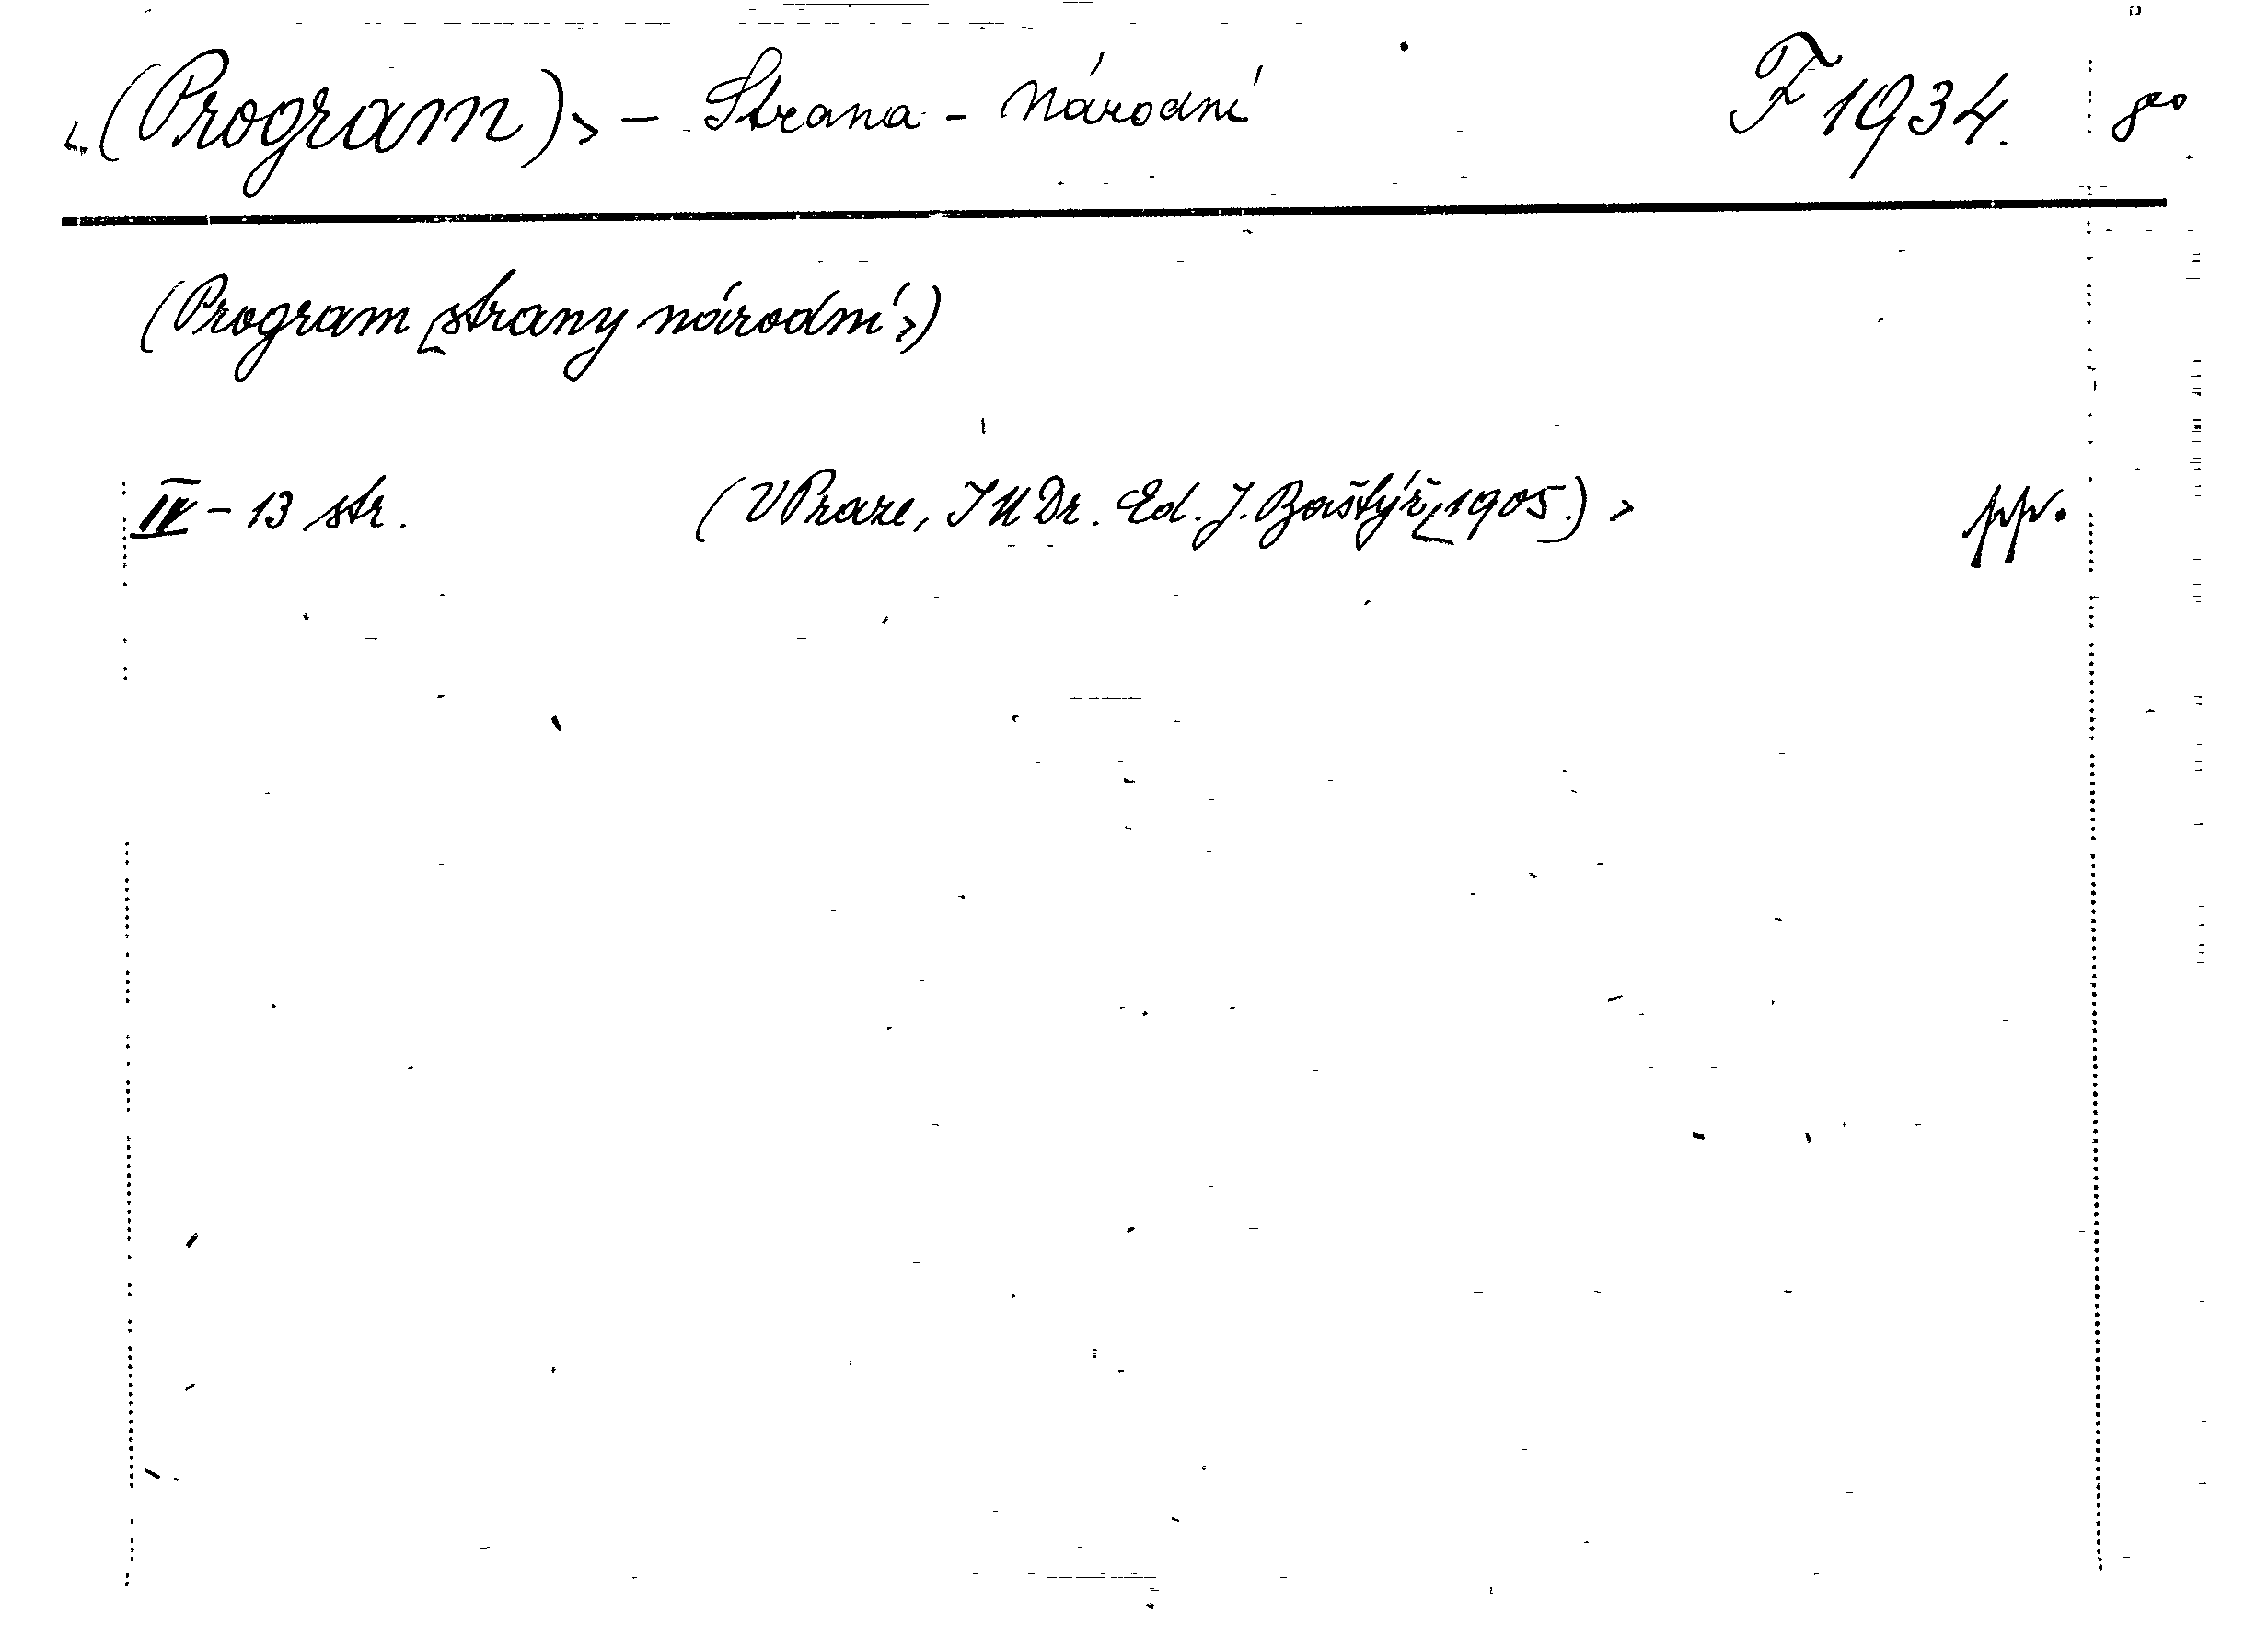 <(Program)> - Strana - Národní F 1934. 8°
(Program <strany národní>)
IV - 13 str. (V Praze, JUDr. Ed. J. Baštýř <1905.)> pp.